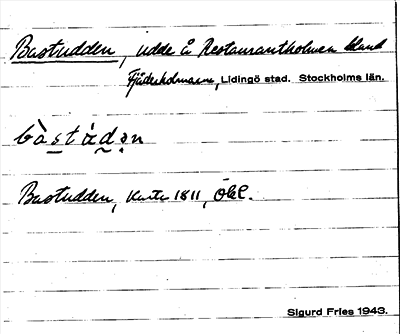 Bastudden, udde å Restaurantholmen bland
Fjäderholmarna, Lidingö stad. Stockholms län.
bàstùdən
Bastudden, Karta 1811, ÖKL.
Sigurd Fries 1943.